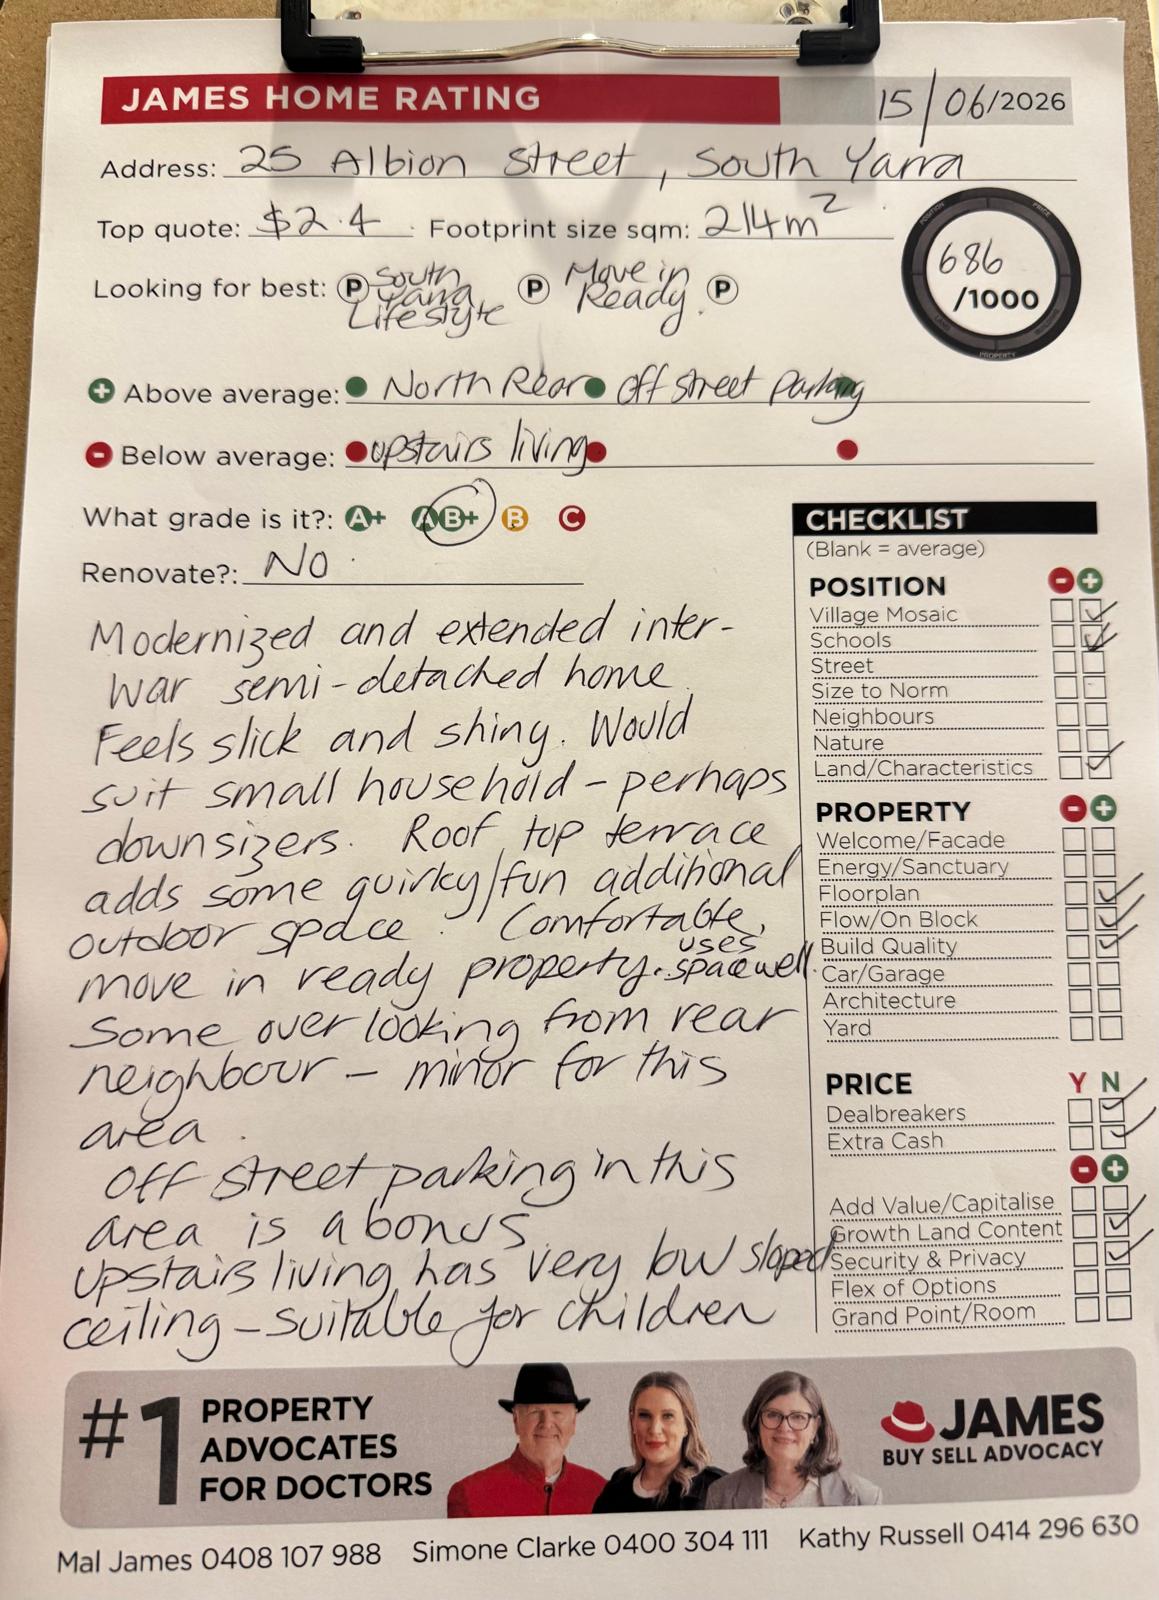 JAMES HOME RATING 15/06/2026
Address: 25 Albion Street, South Yarra
Top quote: $2.4 Footprint size sqm: 214m²
686
/1000
POSITION PRICE LAND BUILDING PROPERTY
Looking for best: P South Yarra Lifestyle P Move in Ready. P
+ Above average: North Rear off street parking
- Below average: upstairs living
What grade is it?: A+ A B+ B C
Renovate?: No
Modernized and extended inter-
war semi-detached home
Feels slick and shiny. Would
suit small household - perhaps
downsizers. Roof top terrace
adds some quirky/fun additional
outdoor space. Comfortable,
move in ready property. uses space well.
Some over looking from rear
neighbour - minor for this
area.
Off street parking in this
area is a bonus
Upstairs living has very low sloped
ceiling - suitable for children
CHECKLIST
(Blank = average)
POSITION - +
Village Mosaic
Schools
Street
Size to Norm
Neighbours
Nature
Land/Characteristics
PROPERTY - +
Welcome/Facade
Energy/Sanctuary
Floorplan
Flow/On Block
Build Quality
Car/Garage
Architecture
Yard
PRICE Y N
Dealbreakers
Extra Cash
- +
Add Value/Capitalise
Growth Land Content
Security & Privacy
Flex of Options
Grand Point/Room
#1 PROPERTY
ADVOCATES
FOR DOCTORS
JAMES
BUY SELL ADVOCACY
Mal James 0408 107 988 Simone Clarke 0400 304 111 Kathy Russell 0414 296 630